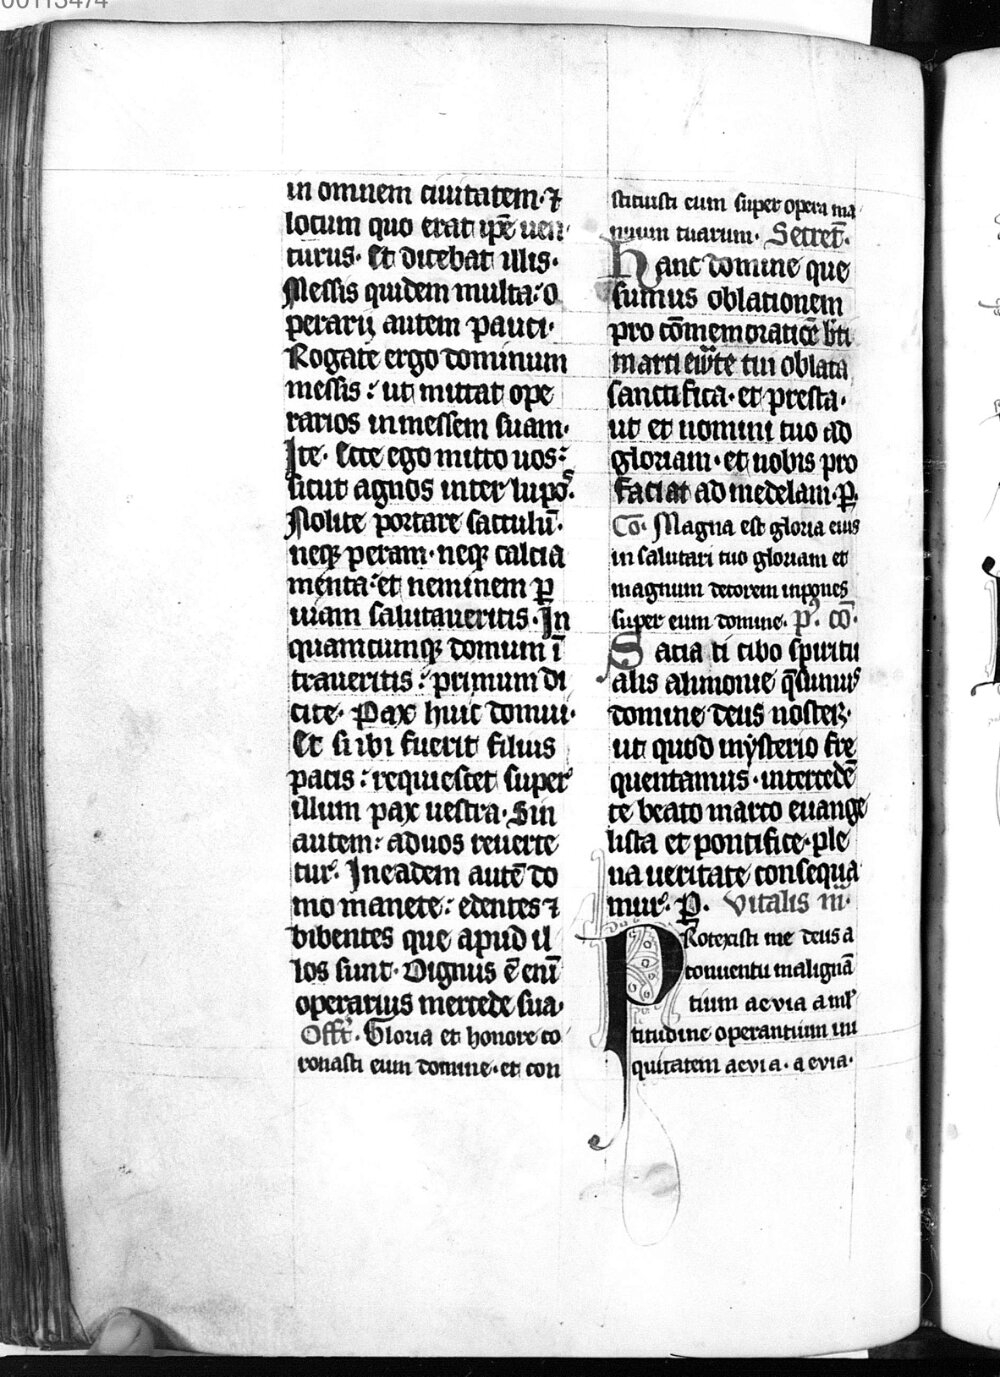 00113474
in omnem ciuitatem · ⁊
locum quo erat ip̄e uen
turus · Et dicebat illis ·
Messis quidem multa : o
perarij autem pauci ·
Rogate ergo dominum
messis : ut mittat ope
rarios in messem suam ·
Ite · Ecce ego mitto uos :
sicut agnos inter lupoˢ ·
Nolite portare sacculū ·
neqꝫ peram · neqꝫ calcia
menta : et neminem ꝑ
uiam salutaueritis · In
quamcumqꝫ domum ī
traueritis : primum di
cite · Pax huic domui ·
Et si ibi fuerit filius
pacis : requiescet super
illum pax uestra · Sin
autem : ad uos reuerte
tur · In eadem autē do
mo manete : edentes ⁊
bibentes que apud il
los sunt · Dignus ē enī
operarius mercede sua ·
Offr̄ · Gloria et honore co
ronasti eum domine · et con
stituisti eum super opera ma
nuum tuarum · Secret̄ ·
Hanc domine que
sumus oblationem
pro cōmemoratiōe b̄ti
marci ew̄te tui oblata
sanctifica · et presta ·
ut et nomini tuo ad
gloriam · et nobis pro
faciat ad medelam · P̱
Cō · Magna est gloria eius
in salutari tuo gloriam et
magnum decorem inpones
super eum domine · pꝰ · cō ·
Saciati cibo spiritu
alis alimonie q̄sumus
domine deus noster ·
ut quod mysterio fre
quentamus · intercedē
te beato marco euange
lista et pontifice · ple
na ueritate consequa
mur · P̱ · Vitalis m̄ ·
Protexisti me deus a
conuentu malignā
tium aeuia a ml̄
titudine operantium ini
quitatem aeuia · aeuia ·